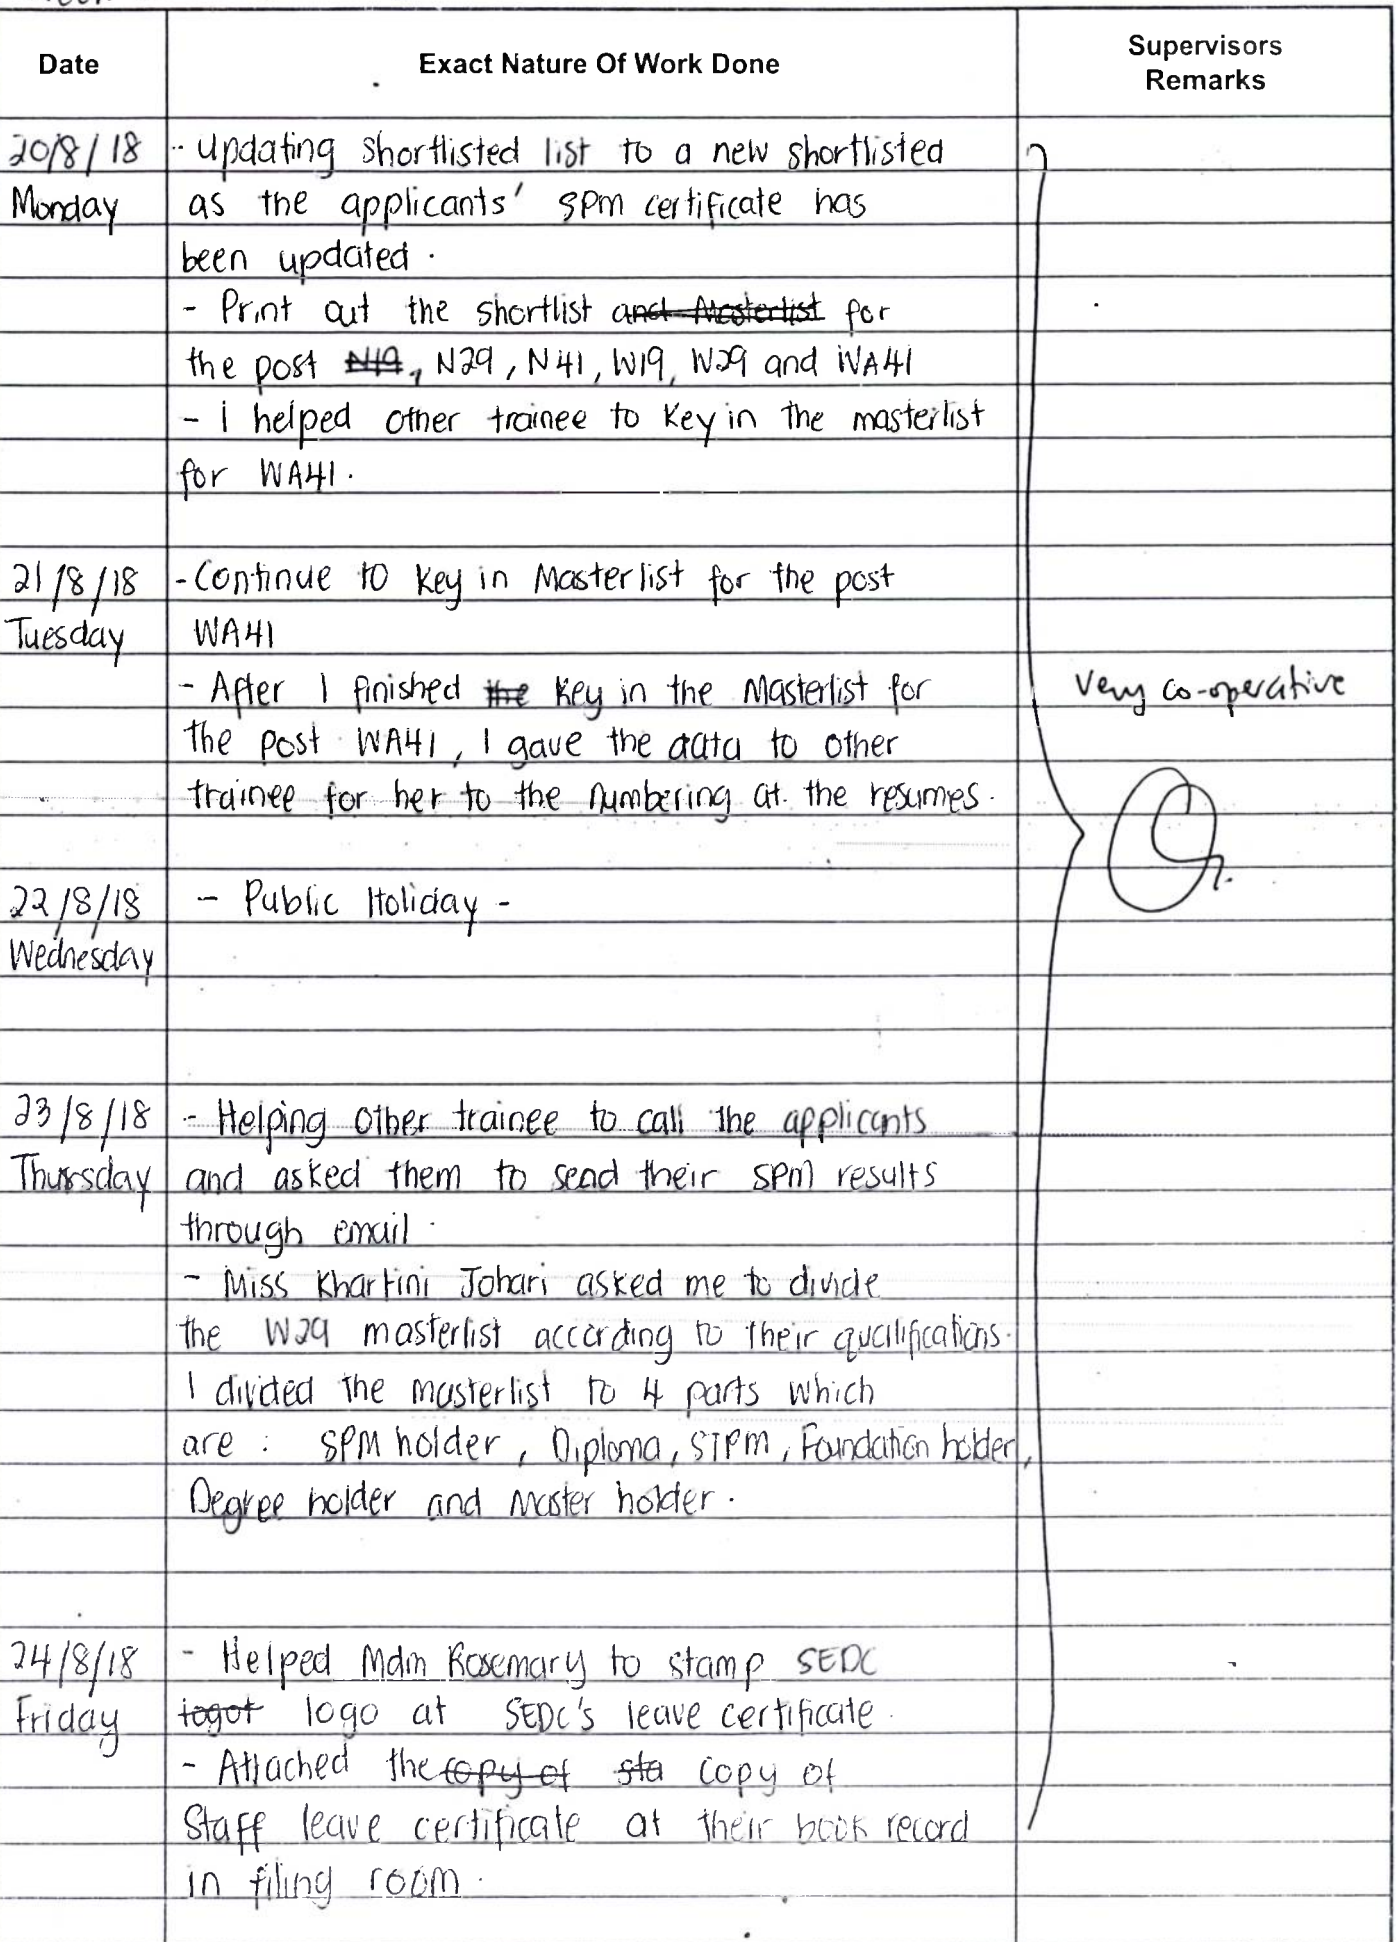 Date Exact Nature Of Work Done Supervisors Remarks
20/8/18 - Updating shortlisted list to a new shortlisted
Monday as the applicants' SPM certificate has
been updated.
- Print out the shortlist and Masterlist for
the post N19, N29, N41, W19, W29 and WA41
- I helped other trainee to key in the masterlist
for WA41.
21/8/18 - Continue to key in Masterlist for the post
Tuesday WA41
- After I finished the key in the Masterlist for Very co-operative
the post WA41, I gave the data to other
trainee for her to the numbering at the resumes.
22/8/18 - Public Holiday -
Wednesday
23/8/18 - Helping other trainee to call the applicants
Thursday and asked them to send their SPM results
through email.
- Miss Khartini Johari asked me to divide
the W29 masterlist according to their qualifications.
I divided the masterlist to 4 parts which
are : SPM holder, Diploma, STPM, Foundation holder,
Degree holder and Master holder.
24/8/18 - Helped Mdm Rosemary to stamp SEDC
Friday logot logo at SEDC's leave certificate.
- Attached the copy of sta copy of
Staff leave certificate at their book record
in filing room.